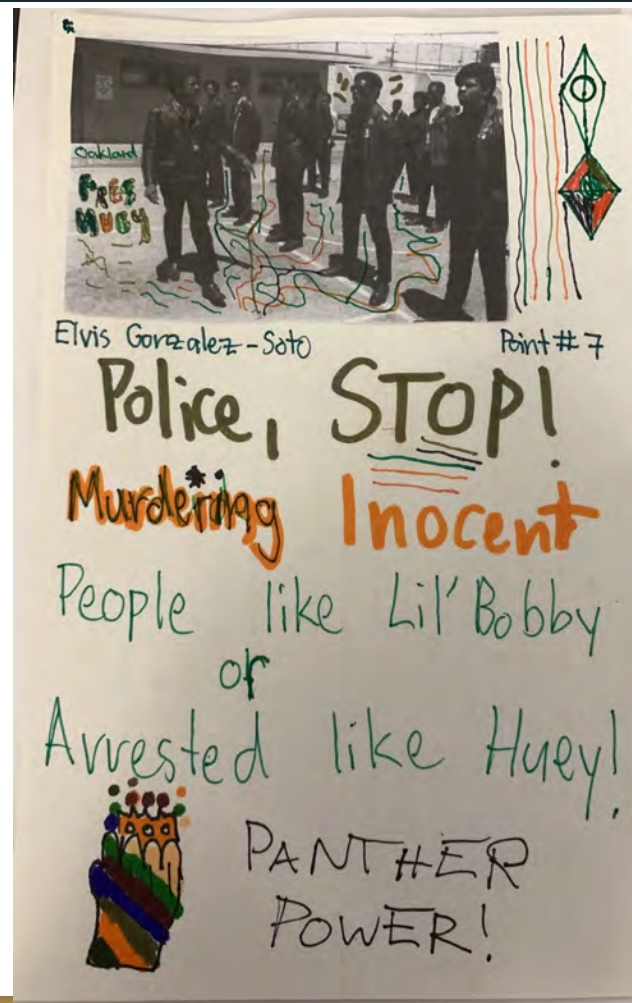 Oakland
FREE
HUEY
Elvis Gonzalez-Soto
Point # 7
Police, STOP!
Murdering Inocent
People like Lil' Bobby
or
Arrested like Huey!
PANTHER
POWER!